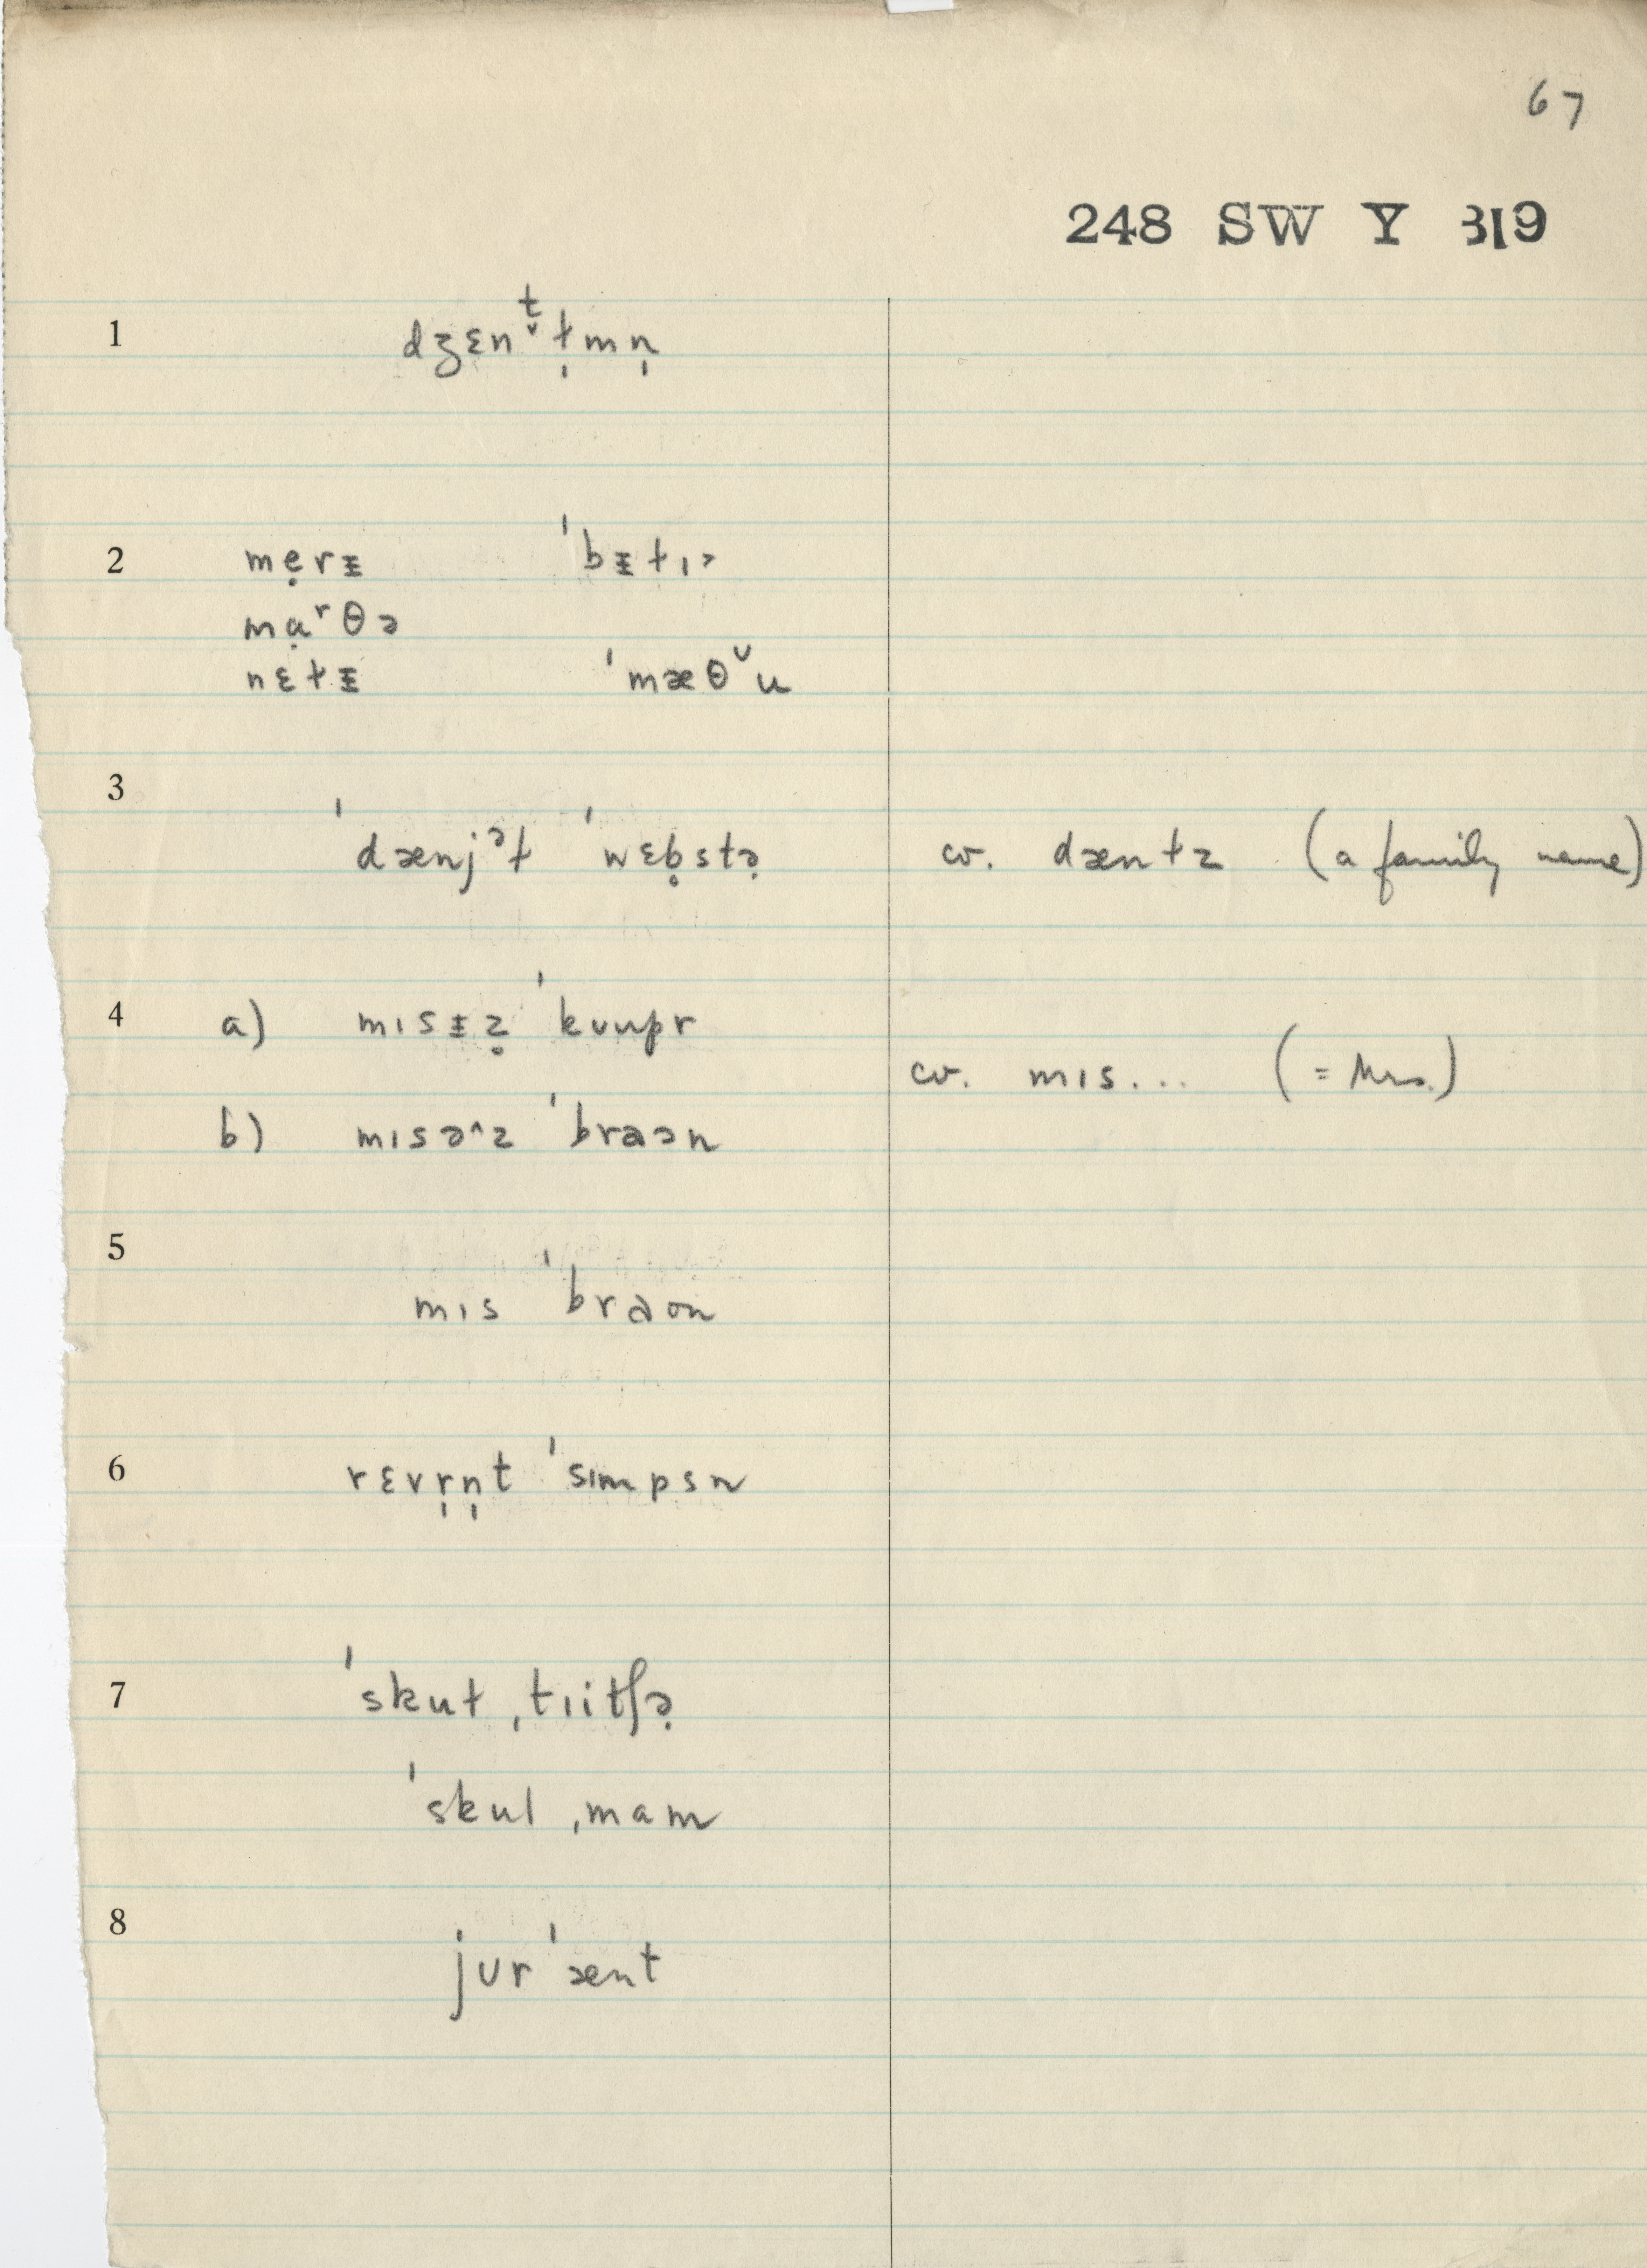 67
248 SW Y 319
1 dʒɛnᵗ̬ɫ̩mn̩
2 mẹrᵻ ˈbᵻɫɪɔ
mạʳθə
nɛɫᵻ ˈmæθˇu
3 ˈdænjᵊɫ ˈwɛḅstə̣ cv. dænɫz (a family name)
4 a) mɪsᵻẓ ˈkʊupr
cv. mɪs... (= Mrs.)
b) mɪsə^z ˈbraən
5 mɪs ˈbraʊn
6 rɛvr̩n̩t ˈsɪmpsn
7 ˈskuɫ ˌtɪitʃə̣
ˈskul ˌmam
8 jʊrˈænt